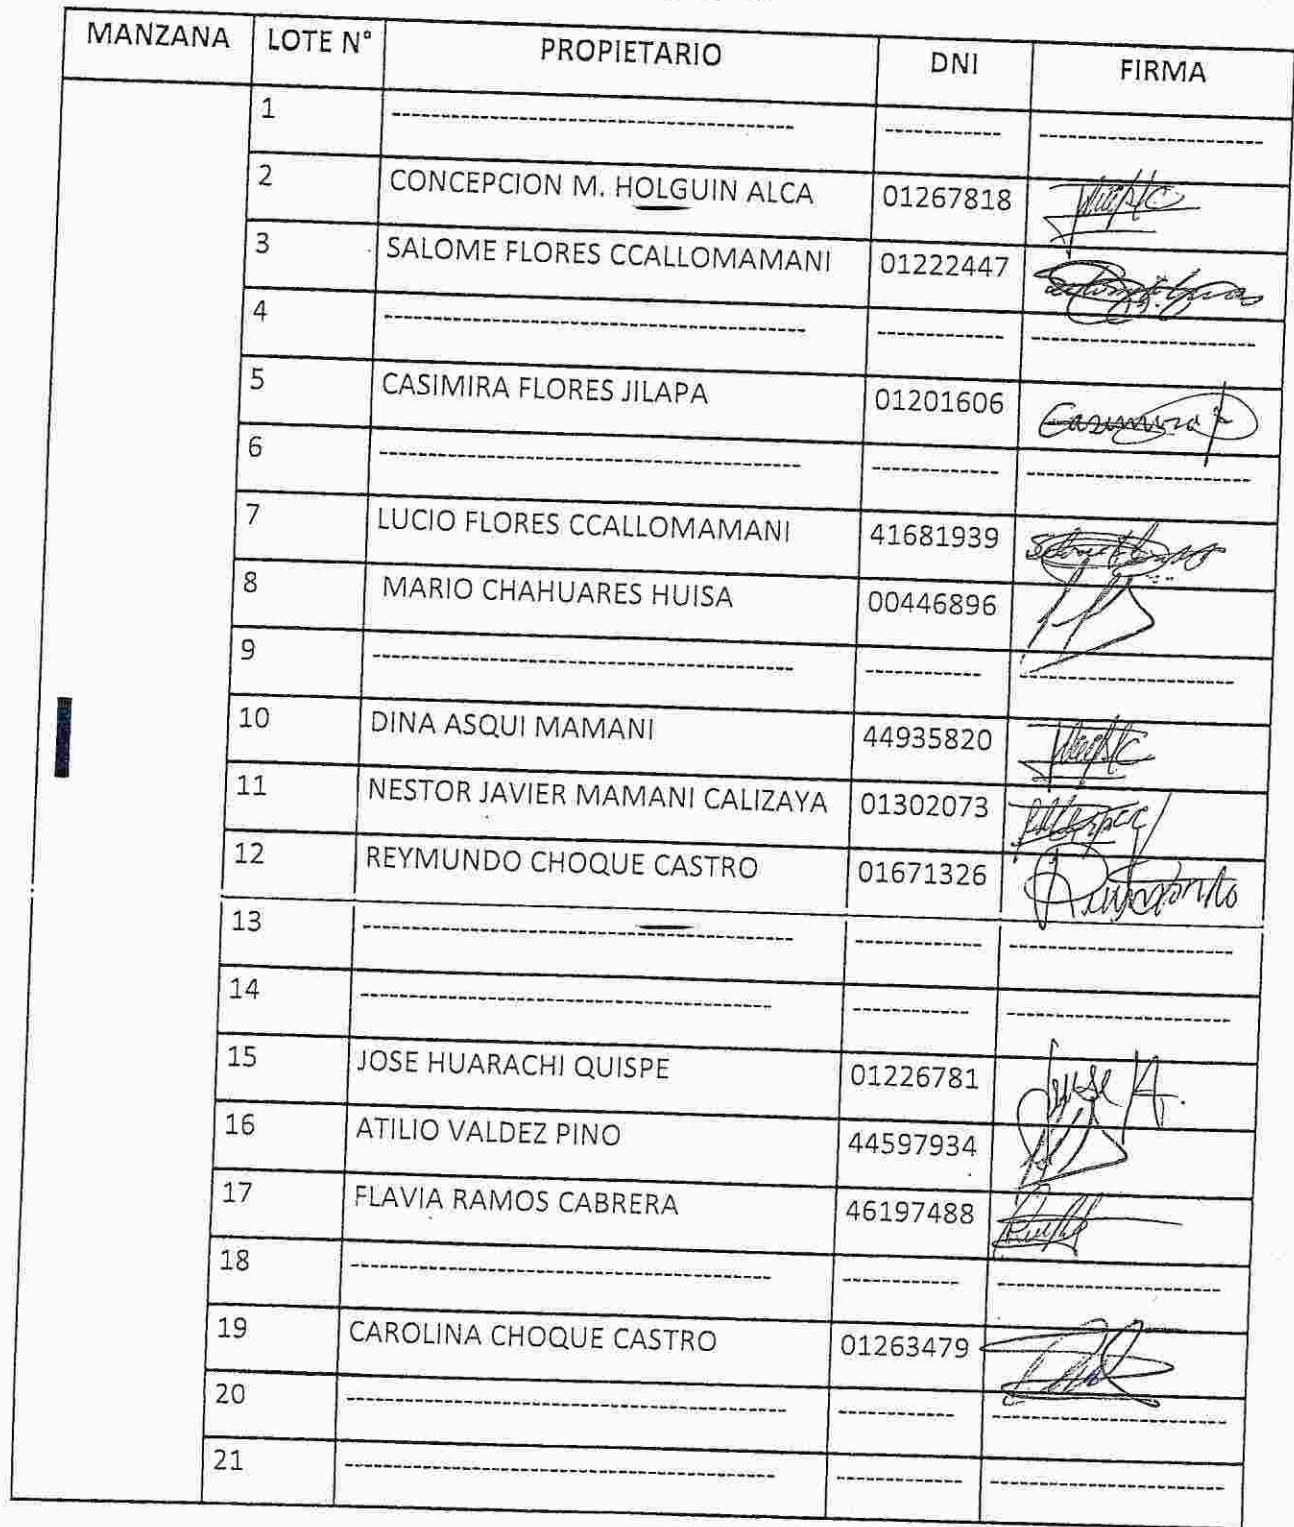 MANZANA LOTE N° PROPIETARIO DNI FIRMA
1 ---------- ---------- ----------
2 CONCEPCION M. HOLGUIN ALCA 01267818
3 SALOME FLORES CCALLOMAMANI 01222447
4 ---------- ---------- ----------
5 CASIMIRA FLORES JILAPA 01201606 Casimira
6 ---------- ---------- ----------
7 LUCIO FLORES CCALLOMAMANI 41681939
8 MARIO CHAHUARES HUISA 00446896
9 ---------- ---------- ----------
10 DINA ASQUI MAMANI 44935820
11 NESTOR JAVIER MAMANI CALIZAYA 01302073
12 REYMUNDO CHOQUE CASTRO 01671326
13 ---------- ---------- ----------
14 ---------- ---------- ----------
15 JOSE HUARACHI QUISPE 01226781
16 ATILIO VALDEZ PINO 44597934
17 FLAVIA RAMOS CABRERA 46197488
18 ---------- ---------- ----------
19 CAROLINA CHOQUE CASTRO 01263479
20 ---------- ---------- ----------
21 ---------- ---------- ----------